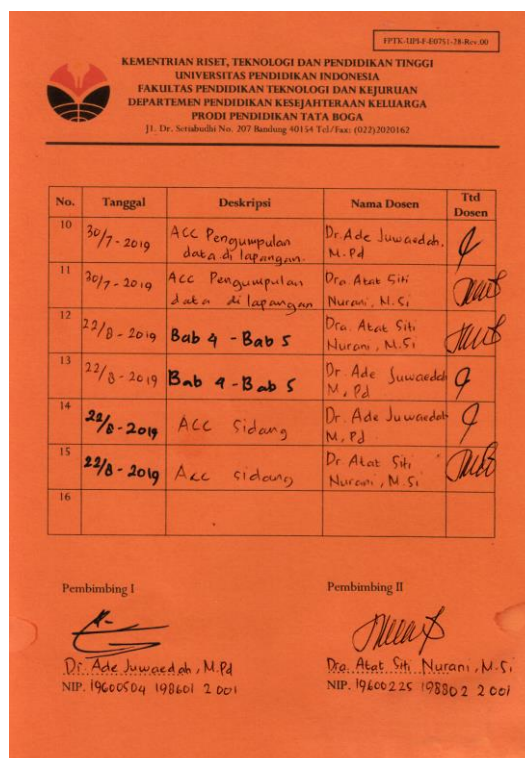 FPTK-UPI-F-E0751-28-Rev.00
KEMENTRIAN RISET, TEKNOLOGI DAN PENDIDIKAN TINGGI
UNIVERSITAS PENDIDIKAN INDONESIA
FAKULTAS PENDIDIKAN TEKNOLOGI DAN KEJURUAN
DEPARTEMEN PENDIDIKAN KESEJAHTERAAN KELUARGA
PRODI PENDIDIKAN TATA BOGA
Jl. Dr. Setiabudhi No. 207 Bandung 40154 Tel/Fax: (022)2020162
No. Tanggal Deskripsi Nama Dosen Ttd
Dosen
10 30/7-2019 ACC Pengumpulan Dr. Ade Juwaedah,
data di lapangan. M.Pd
11 30/7-2019 Acc Pengumpulan Dra. Atat Siti
data di lapangan Nurani, M.Si
12 22/8-2019 Bab 4 - Bab 5 Dra. Atat Siti
Nurani, M.Si
13 22/8-2019 Bab 4 - Bab 5 Dr. Ade Juwaedah
M, Pd
14 22/8-2019 ACC Sidang Dr. Ade Juwaedah
M, Pd
15 22/8-2019 Acc sidang Dr Atat Siti
Nurani, M.Si
16
Pembimbing I Pembimbing II
Dr. Ade Juwaedah, M.Pd Dra. Atat Siti Nurani, M.Si
NIP. 19600504 198601 2 001 NIP. 19600225 198802 2 001